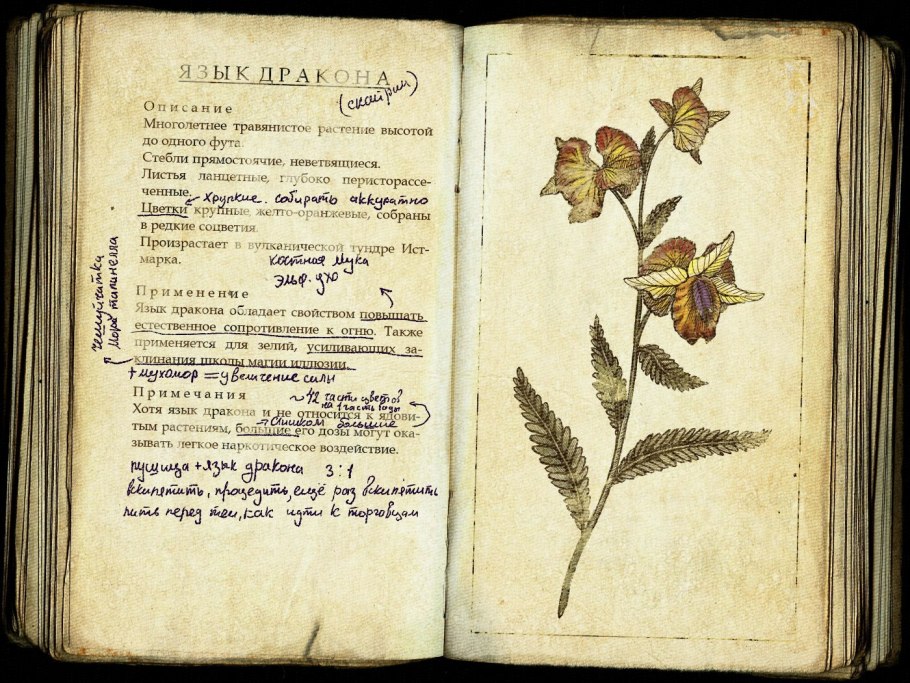 ЯЗЫК ДРАКОНА
(скайрим)
Описание
Многолетнее травянистое растение высотой
до одного фута.
Стебли прямостоячие, неветвящиеся.
Листья ланцетные, глубоко перисторассе-
ченные.
хрупкие. собирать аккуратно
Цветки крупные, желто-оранжевые, собраны
в редкие соцветия.
Произрастает в вулканической тундре Ист-
марка.
костная мука
эльф. ухо
чешуйчатка
Применение
Язык дракона обладает свойством повышать
естественное сопротивление к огню. Также
применяется для зелий, усиливающих за-
клинания школы магии иллюзии.
+ мухомор = увеличение силы
Примечания
части цветов
на 1 часть воды
Хотя язык дракона и не относится к ядови-
слишком большие
тым растениям, большие его дозы могут ока-
зывать легкое наркотическое воздействие.
пушица + язык дракона 3:1
вскипятить, процедить, ещё раз вскипятить
пить перед тем, как идти к торговцам